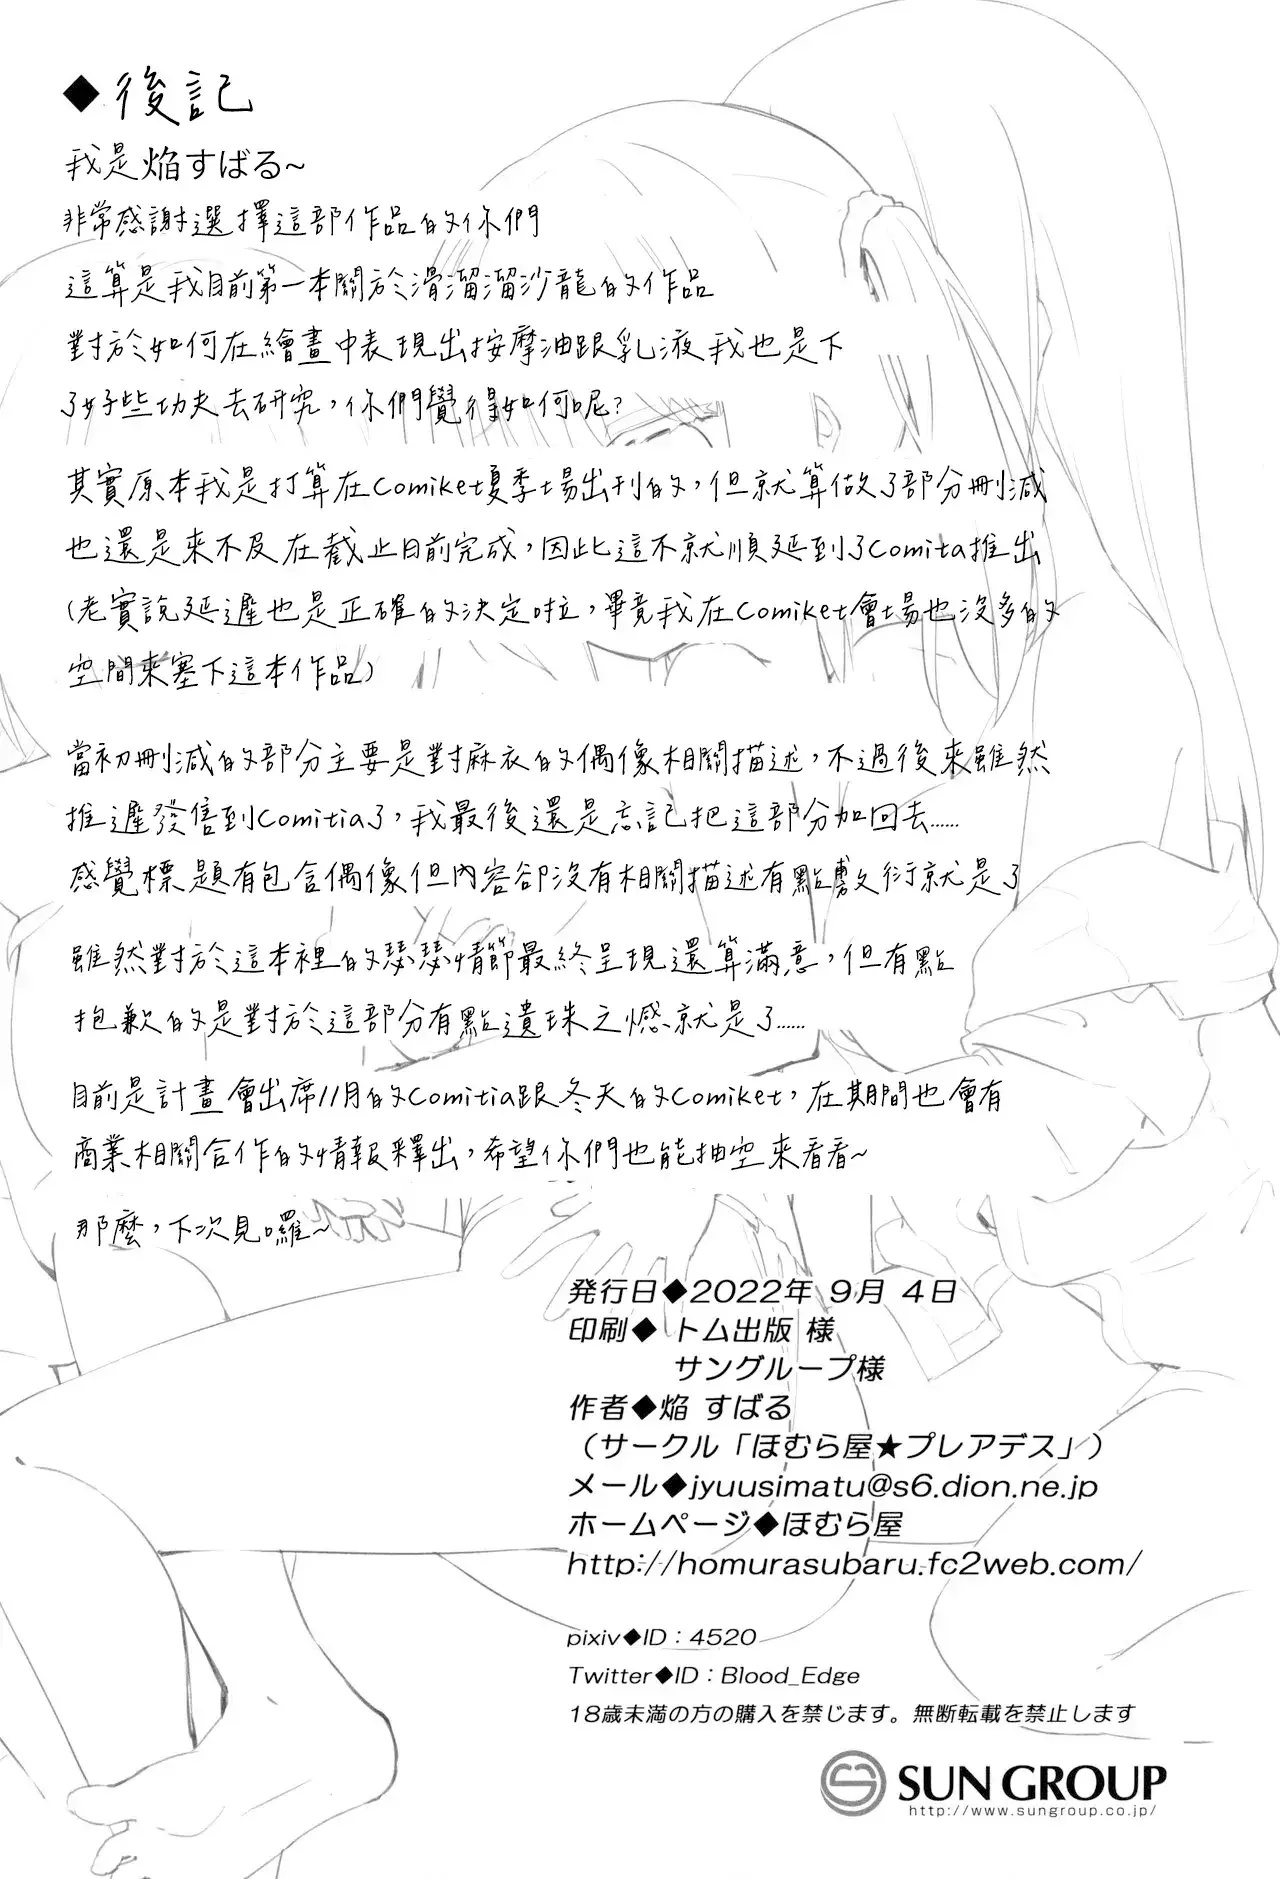 ◆後記
我是焔すばる~
非常感謝選擇這部作品的你們
這算是我目前第一本關於滑溜溜沙龍的作品
對於如何在繪畫中表現出按摩油跟乳液我也是下
了好些功夫去研究，你們覺得如何呢?
其實原本我是打算在Comiket夏季場出刊的，但就算做了部分刪減
也還是來不及在截止日前完成，因此這不就順延到了Comita推出
(老實說延遲也是正確的決定啦，畢竟我在Comiket會場也沒多的
空間來塞下這本作品)
當初刪減的部分主要是對麻衣的偶像相關描述，不過後來雖然
推遲發售到Comitia了，我最後還是忘記把這部分加回去……
感覺標題有包含偶像但內容卻沒有相關描述有點敷衍就是了
雖然對於這本裡的瑟瑟情節最終呈現還算滿意，但有點
抱歉的是對於這部分有點遺珠之憾就是了……
目前是計畫會出席11月的Comitia跟冬天的Comiket，在期間也會有
商業相關合作的情報釋出，希望你們也能抽空來看看~
那麼，下次見囉~
発行日◆2022年 9月 4日
印刷◆ トム出版 様
サングループ様
作者◆焔 すばる
（サークル「ほむら屋★プレアデス」）
メール◆jyuusimatu@s6.dion.ne.jp
ホームページ◆ほむら屋
http://homurasubaru.fc2web.com/
pixiv◆ID：4520
Twitter◆ID：Blood_Edge
18歳未満の方の購入を禁じます。無断転載を禁止します
SUN GROUP
http://www.sungroup.co.jp/